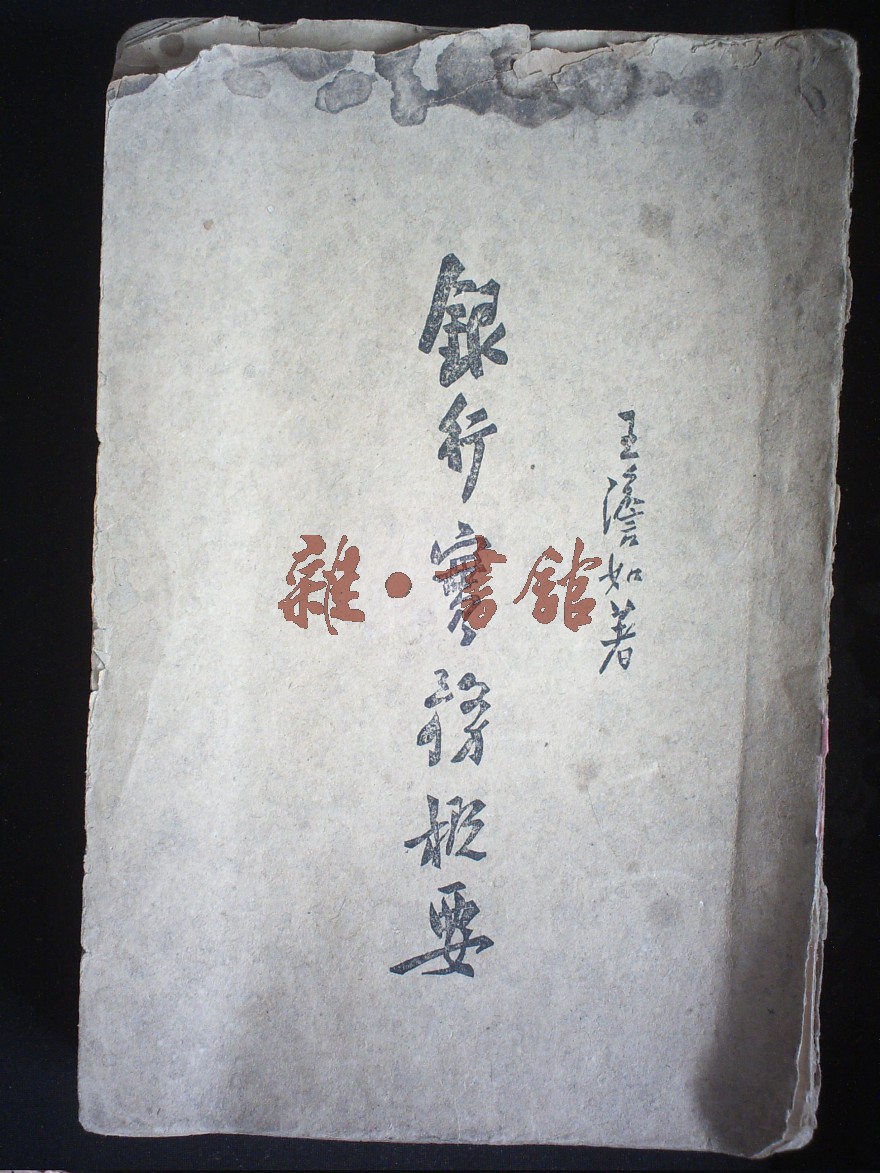 王澹如著
銀行實務概要
雜·書館